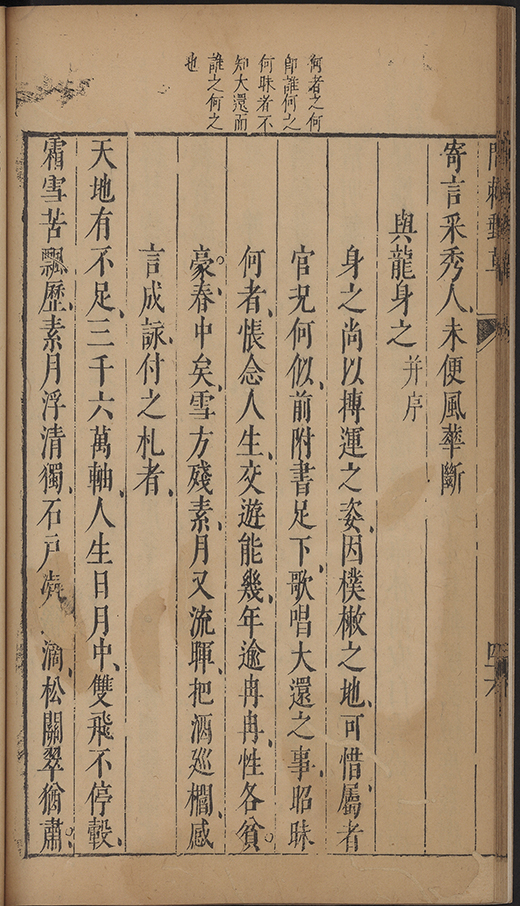 何者之何
即誰何之
何昧者不
知大還而
誰之何之
也
問棘郵草
四六
寄言采秀人、未便風華斷
與龍身之 并序
身之尚以摶運之姿、因樸樕之地、可惜屬者
官况何似、前附書足下、歌唱大還之事、昭昧
何者、悵念人生、交遊能幾、年逾冉冉、性各貧。
豪。春中矣、雪方殘素、月又流暉、把酒廵櫩、感
言成詠、付之札者、
天地有不足、三千六萬軸、人生日月中、雙飛不停轂、
霜雪苦飄歷、素月浮清獨、石戸 滴、松關翠猶肅。